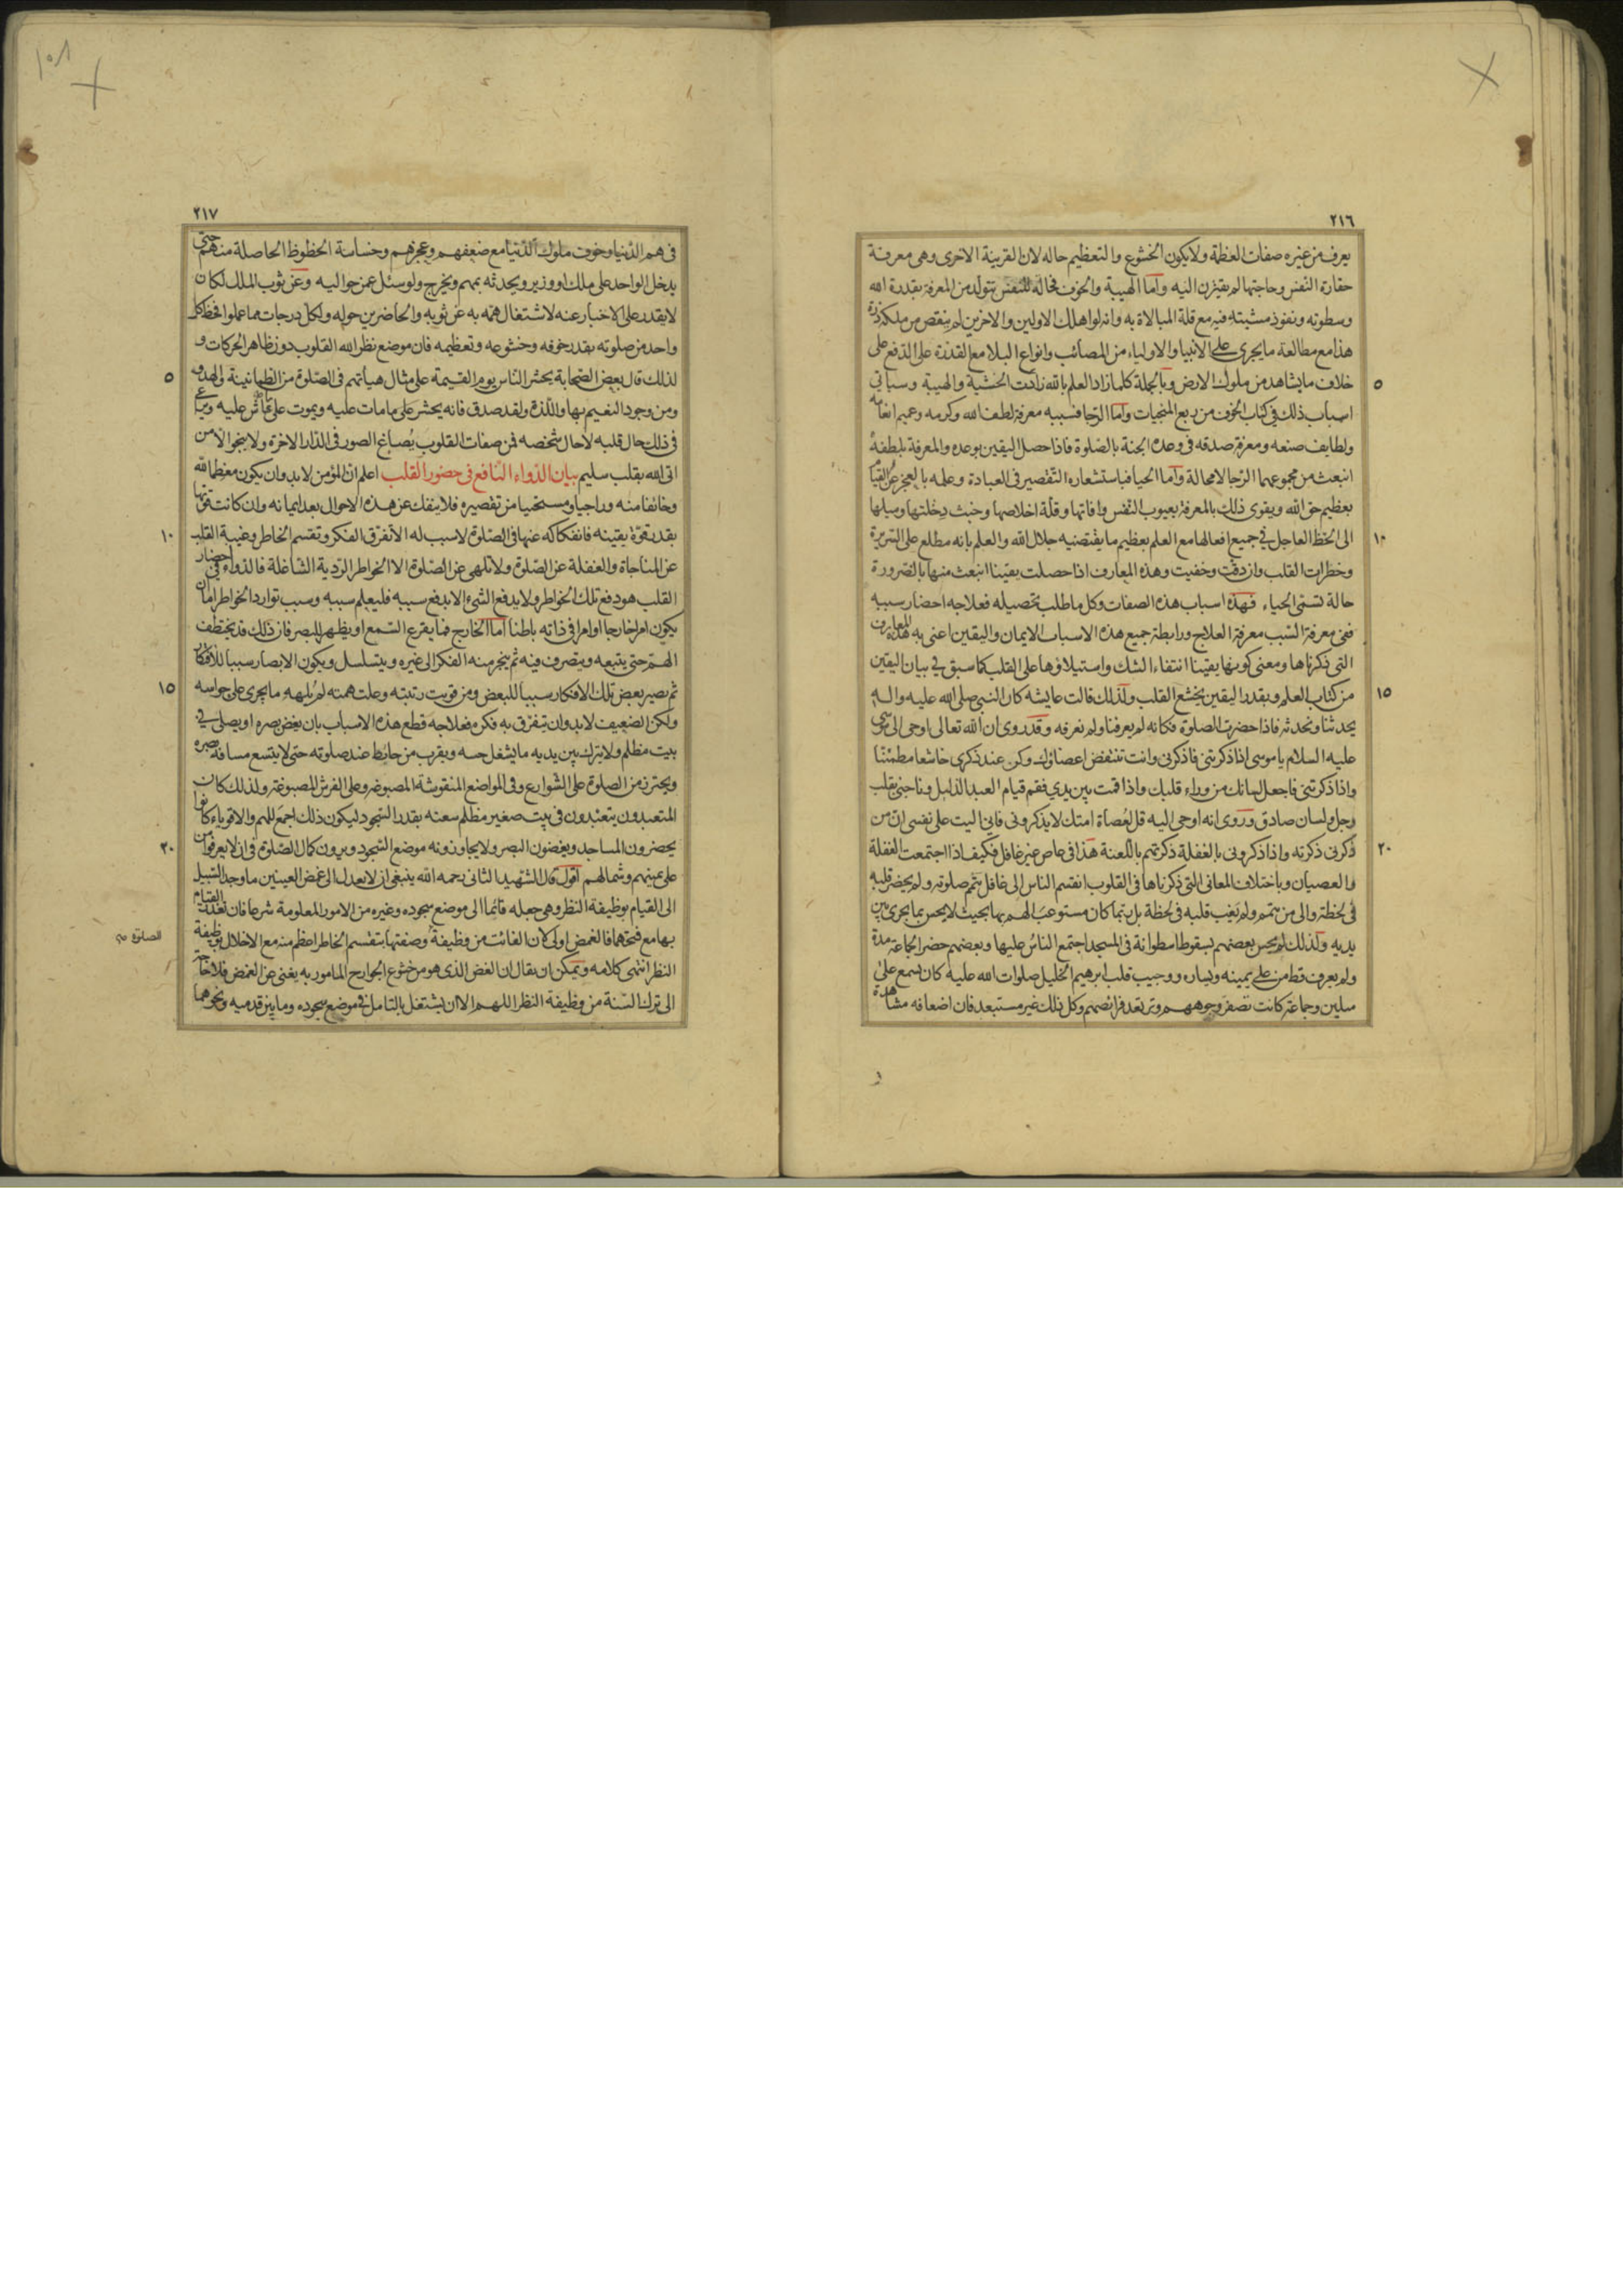 ٢١٦
يعرف من غيره صفات العظمة ولا يكون الخشوع والتعظيم حاله لان القرينة الاخرى وهى معرفة
حقارة النفس وحاجتها لم يقترن اليه وأما الهيبة والخوف فحالة للنفس تتولد من المعرفة بقدرة الله
وسطوته ونفوذ مشيته فيه مع قلة المبالاة به وانه لو اهلك الاولين والاخرين لم ينقص من ملكه ذرة
هذا مع مطالعة ما يجرى على الانبيا والاولياء من المصائب وانواع البلا مع القدرة على الدفع على
٥
خلاف ما يشاهد من ملوك الارض وبالجملة كلما زاد العلم بالله زادت الخشية والهيبة وسياتى
اسباب ذلك فى كتاب الخوف من ربع المنجيات وأما الرجا فسببه معرفة لطف الله وكرمه وعميم انعامه
ولطايف صنعه ومعرفة صدقه فى وعده الجنة بالصلوة فاذا حصل اليقين بوعده والمعرفة بلطفه
انبعث من مجموعهما الرجا لا محالة وأما الحيا فباستشعاره التقصير فى العبادة وعلمه بالعجز عن القيام
بعظيم حق الله ويقوى ذلك بالمعرفة بعيوب النفس وآفاتها وقلة اخلاصها وخبث دخلتها وميلها
١٠
الى الحظ العاجل فى جميع افعالها مع العلم بعظيم ما يقتضيه جلال الله والعلم بانه مطلع على السريرة
وخطرات القلب وان دقت وخفيت وهذه المعارف اذا حصلت يقينا انبعث منها بالضرورة
حالة تسمى الحياء فهذه اسباب هذه الصفات وكل ما طلب تحصيله فعلاجه احضار سببه
ففى معرفة السبب معرفة العلاج ورابطة جميع هذه الاسباب الايمان واليقين اعنى به هذه المعارف
التى ذكرناها ومعنى كونها يقينا انتفاء الشك واستيلاؤها على القلب كما سبق فى بيان اليقين
١٥
من كتاب العلم وبقدر اليقين يخشع القلب ولذلك قالت عايشه كان النبى صلى الله عليه واله
يحدثنا ونحدثه فاذا حضرت الصلوة فكانه لم يعرفنا ولم نعرفه وقد روى ان الله تعالى اوحى الى موسى
عليه السلام يا موسى اذا ذكرتنى فاذكرنى وانت تنتفض اعضاؤك وكن عند ذكرى خاشعا مطمئنا
واذا ذكرتنى فاجعل لسانك من وراء قلبك واذا قمت بين يدى فقم قيام العبد الذليل وناجنى بقلب
وجل ولسان صادق وروى انه اوحى اليه قل لعصاة امتك لا يذكرونى فانى اليت على نفسى ان من
٢٠
ذكرنى ذكرته واذا ذكرونى بالغفلة ذكرتهم باللعنة هذا فى عاص غير غافل فكيف اذا اجتمعت الغفلة
والعصيان وباختلاف المعانى التى ذكرناها فى القلوب انقسم الناس الى غافل يتمم صلوته ولم يحضر قلبه
فى لحظة والى من يتمم ولم يغب قلبه فى لحظة بل ربما كان مستوعب الهم بها بحيث لا يحس بما يجرى بين
يديه ولذلك لم يحس بعضهم بسقوط اسطوانة فى المسجد اجتمع الناس عليها وبعضهم حضر الجماعة مدة
ولم يعرف قط من على يمينه ويساره ووجيب قلب ابرهيم الخليل صلوات الله عليه كان يسمع على
ميلين وجماعة كانت تصفر وجوههم وترتعد فرائصهم وكل ذلك غير مستبعد فان اضعافه مشاهدة
٢١٧
فى هم الدنيا وخوف ملوك الدنيا مع ضعفهم وعجزهم وخساسة الحظوظ الحاصلة منهم حتى
يدخل الواحد على ملك او وزير ويحدثه بمهم ويخرج ولو سئل عمن حواليه وعن ثوب الملك لكان
لا يقدر على الاخبار عنه لاشتغال همه به عن ثوبه والحاضرين حوله ولكل درجات مما عملوا فحظ كل
واحد من صلوته بقدر خوفه وخشوعه وتعظيمه فان موضع نظر الله القلوب دون ظاهر الحركات و
٥
لذلك قال بعض الصحابة يحشر الناس يوم القيمة على مثال هيأتهم فى الصلوة من الطمانينة والهدو
ومن وجود النعيم بها واللذة ولقد صدق فانه يحشر على ما مات عليه ويموت على ما عاش عليه ويراعى
فى ذلك حال قلبه لا حال شخصه فمن صفات القلوب يصاغ الصور فى الدار الاخرة ولا ينجو الا من
اتى الله بقلب سليم بيان الدواء النافع فى حضور القلب اعلم ان المؤمن لابد وان يكون معظما لله
وخائفا منه وراجيا ومستحييا من تقصيره فلا ينفك عن هذه الاحوال بعد ايمانه وان كانت قوتها
١٠
بقدر قوة يقينه فانفكاكه عنها فى الصلوة لا سبب له الا تفرق الفكر وتقسم الخاطر وغيبة القلب
عن المناجاة والغفلة عن الصلوة ولا تلهى عن الصلوة الا الخواطر الردية الشاغلة فالدواء فى احضار
القلب هو دفع تلك الخواطر ولا يدفع الشىء الا بدفع سببه فليعلم سببه وسبب توارد الخواطر اما ان
يكون امرا خارجا او امرا فى ذاته باطنا أما الخارج فما يقرع السمع او يظهر للبصر فان ذلك قد يختطف
الهم حتى يتبعه ويتصرف فيه ثم ينجر منه الفكر الى غيره ويتسلسل ويكون الابصار سببا للافكار
١٥
ثم يصير بعض تلك الافكار سببا للبعض ومن قويت رتبته وعلت همته لم يلهه ما يجرى على حواسه
ولكن الضعيف لابد وان يتفرق به فكره فعلاجه قطع هذه الاسباب بان يغض بصره او يصلى فى
بيت مظلم ولا يترك بين يديه ما يشغل حسه ويقرب من حائط عند صلوته حتى لا يتسع مسافة بصره
ويحترز من الصلوة على الشوارع وفى المواضع المنقوشة المصبوغه وعلى الفرش المصبوغة ولذلك كان
المتعبدون يتعبدون فى بيت صغير مظلم سعته بقدر السجود ليكون ذلك اجمع للهم والاقوياء كانوا
٢٠
يحضرون المساجد ويغضون البصر ولا يجاوزونه موضع السجود ويرون كمال الصلوة فى ان لا يعرفوا من
على يمينهم وشمالهم أقول قال الشهيد الثانى رحمه الله ينبغى ان لا يعدل الى غمض العينين ما وجد السبيل
الى القيام بوظيفة النظر وهى جعله قائما الى موضع سجوده وغيره من الامور المعلومة شرعا فان تعذر القيام
بها مع فتحهما فالغمض اولى لان الفائت من وظيفة وصفتها بتقسم الخاطر اعظم منه مع الاخلال بوظيفة
الصلوة
النظر انتهى كلامه ويمكن ان يقال ان الغض الذى هو من خشوع الجوارح المامور به يغنى عن الغمض فلا حاجة
الى ترك السنة من وظيفة النظر اللهم الا ان يشتغل بالتامل فى موضع سجوده وما بين قدميه ونحوهما